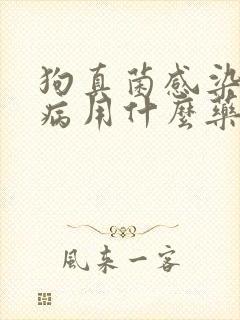 狗真菌感染
病用什麼藥
風来一客